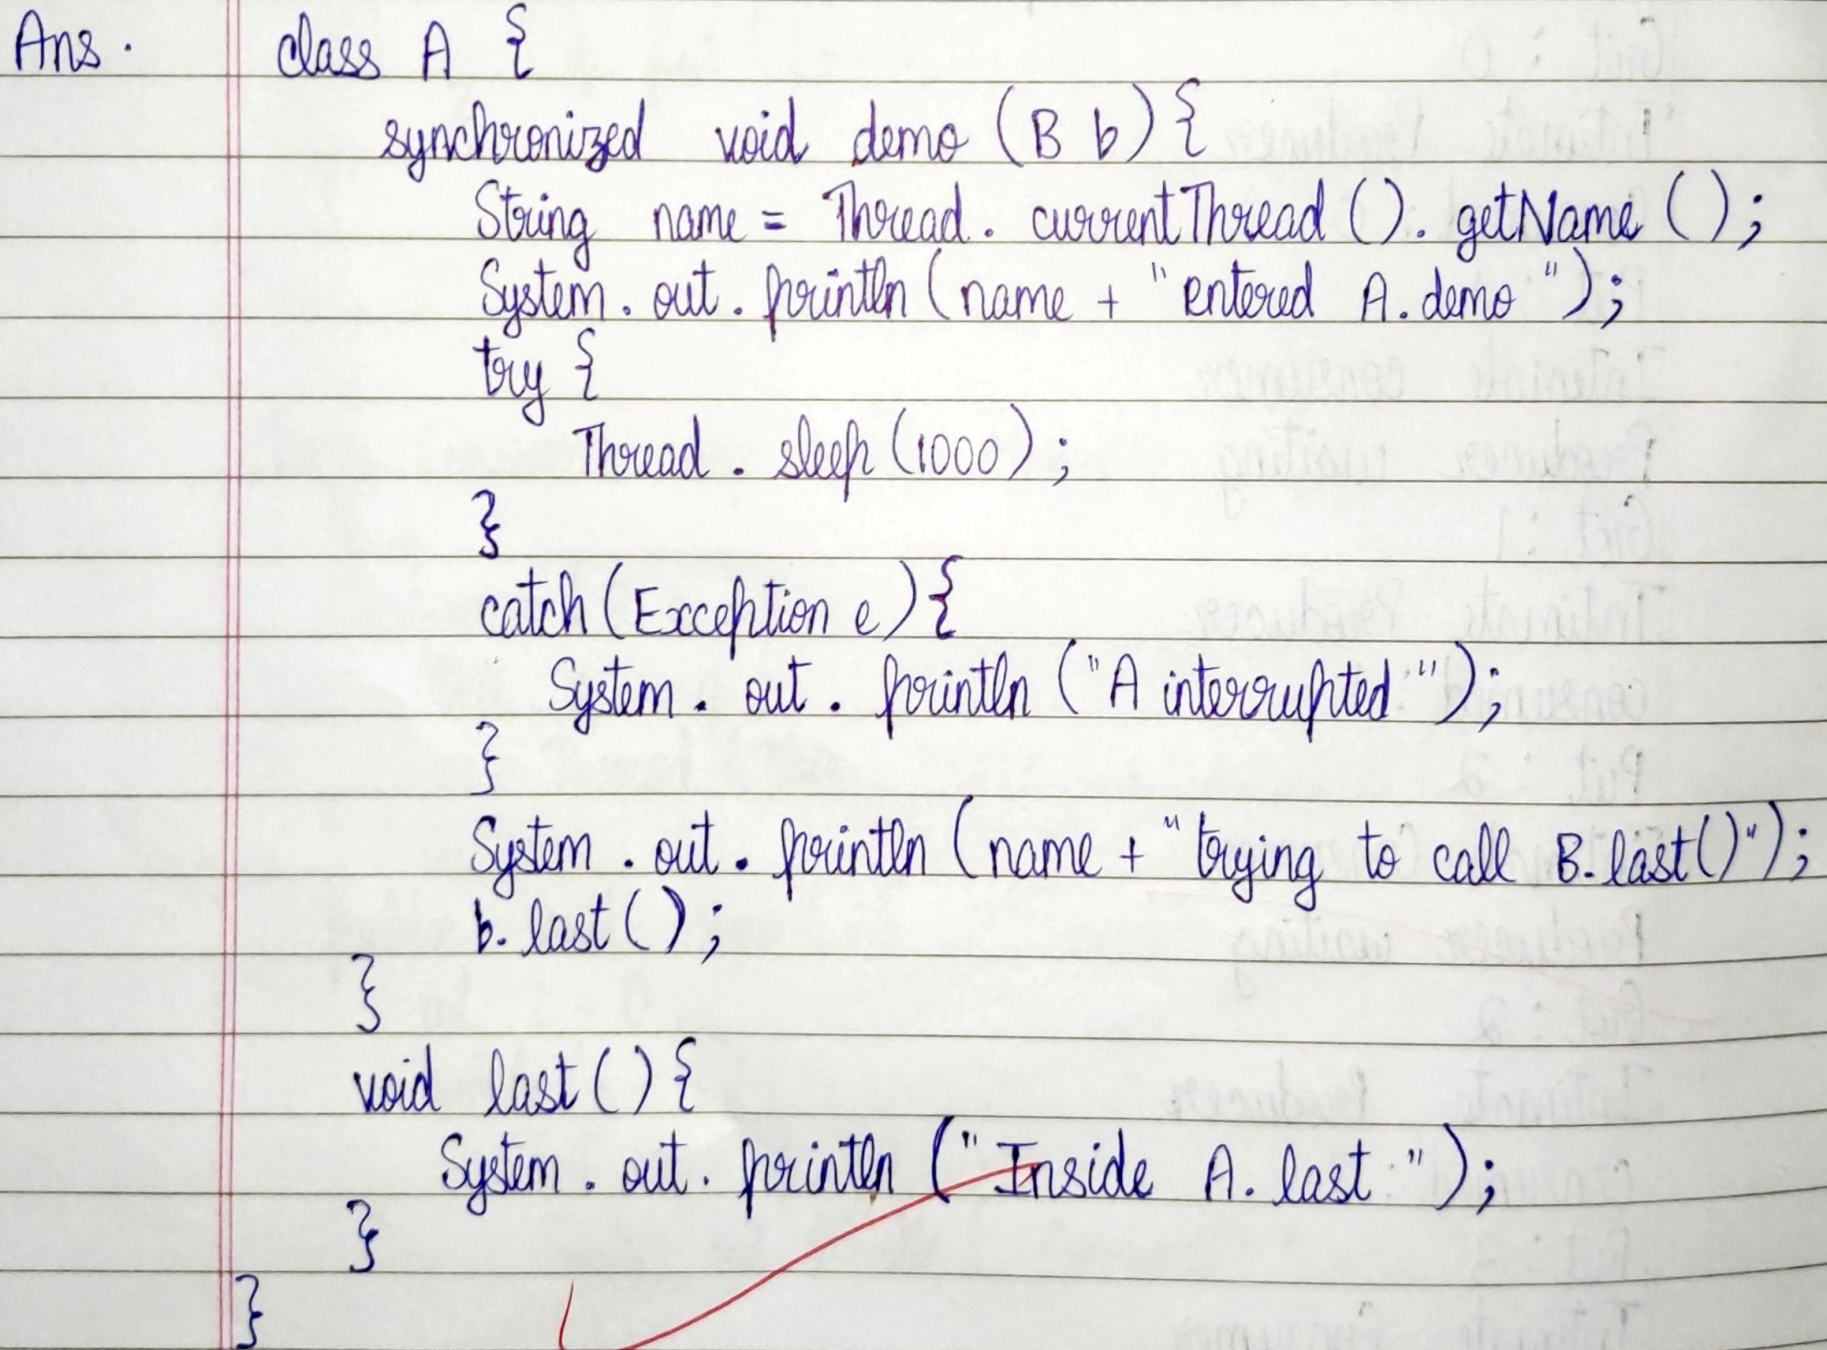 Ans. class A {
synchronized void demo (B b) {
String name = Thread. currentThread (). getName ();
System. out. println (name + "entered A. demo");
try {
Thread. sleep (1000);
}
catch (Exception e) {
System. out. println ("A interrupted");
}
System. out. println (name + "trying to call B. last()");
b. last ();
}
void last () {
System. out. println ("Inside A. last");
}
}